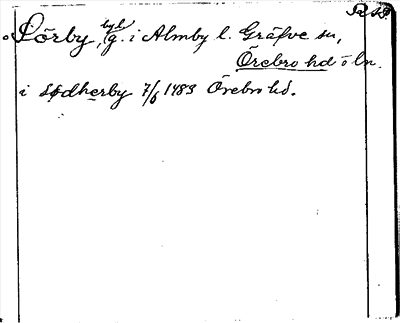 Sörby, byl g. i Almby l. Gräfve sn,
Örebro hd ö ln.
i sødherby 7/6 1483 Örebro hd.